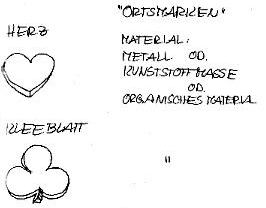 "ORTSMARKEN"
HERZ
MATERIAL:
METALL OD.
KUNSTSTOFFMASSE
OD.
ORGANISCHES MATERIAL
KLEEBLATT
"